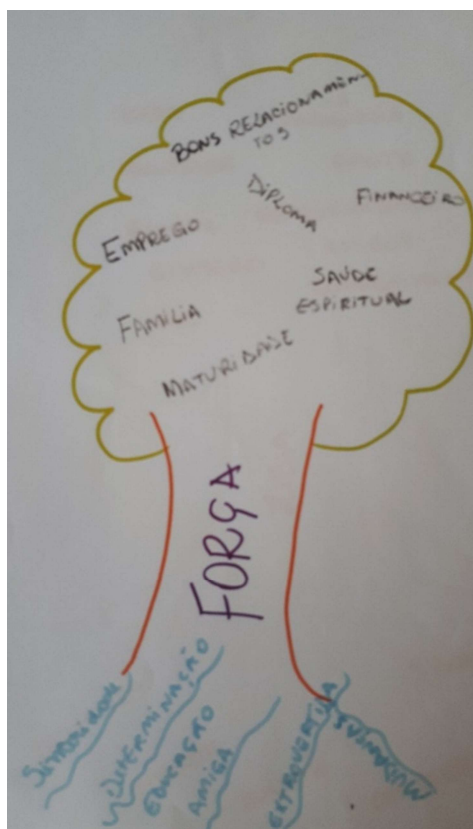 BONS RELACIONAMEN-
TOS
DIPLOMA
FINANCEIRO
EMPREGO
SAÚDE
ESPIRITUAL
FAMÍLIA
MATURIDADE
FORÇA
SINCERIDADE
DETERMINAÇÃO
EDUCAÇÃO
AMIGA
EXTROVERTIDA